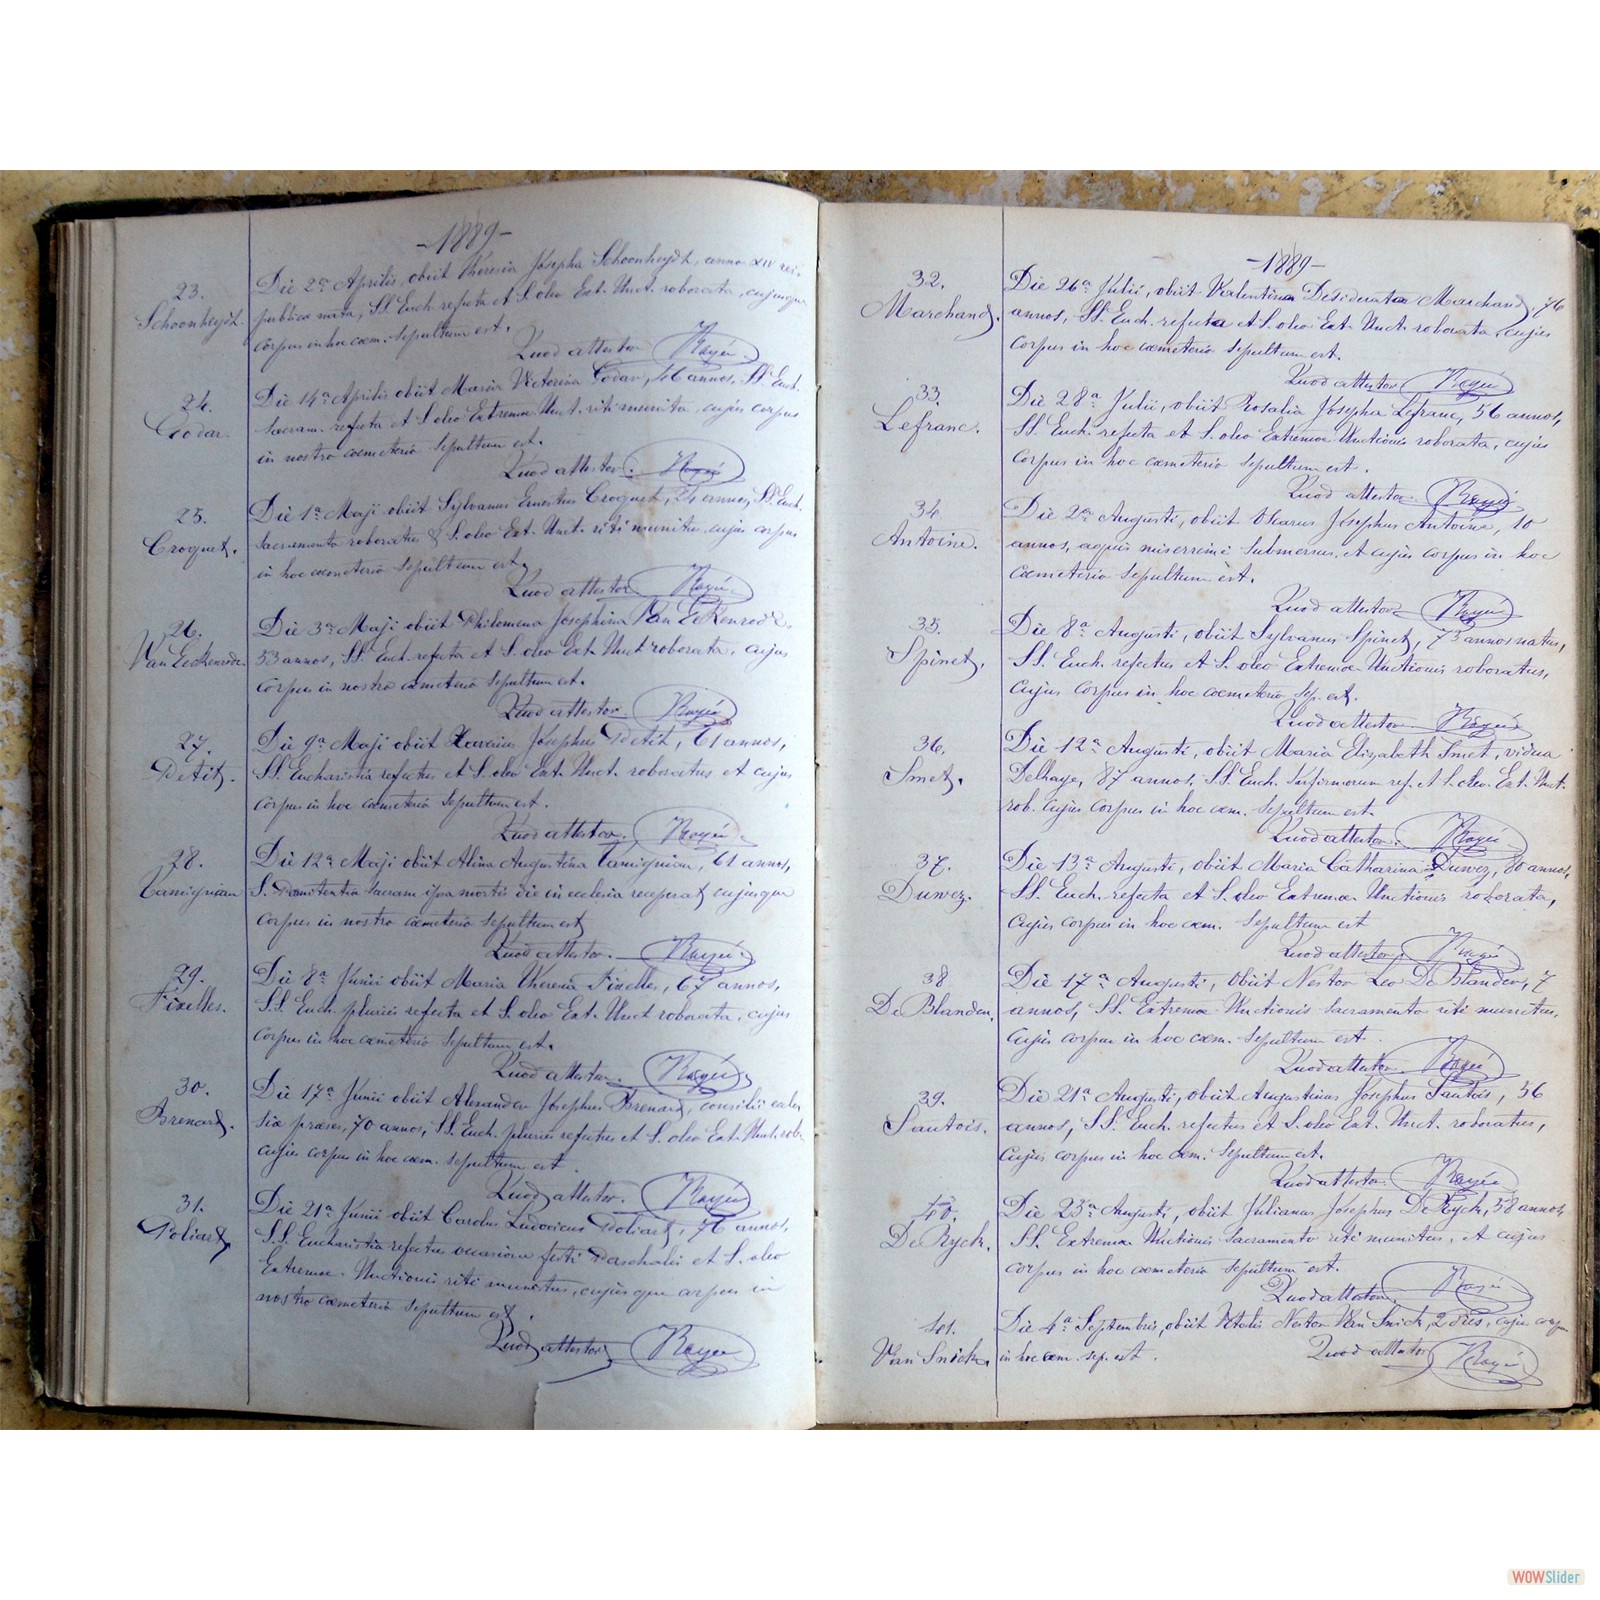 -1889-
23.
Schoonheydt.
Die 2a Aprilis, obiit Theresia Josepha Schoonheydt, anno XIV rei-
publicæ nata, SS. Euch. refecta et S. oleo Ext. Unct. roborata, cujusque
corpus in hoc cœm. sepultum est.
Quod attestor
24.
Godar.
Die 14a Aprilis obiit Maria Victorina Godar, 46 annos, SS. Euch.
sacram. refecta et S. oleo Extremæ Unct. riti munita, cujus corpus
in nostro cœmeterio sepultum est.
Quod attestor.
25.
Croquet.
Die 1a Maji obiit Sylvanus Ernestus Croquet, 24 annos, SS. Euch.
Sacramento roboratus & S. oleo Ext. Unct. riti munitus, cujus corpus
in hoc cœmeterio sepultum est,
Quod attestor
26.
Van Eeckenrode
Die 3a Maji obiit Philomena Josephina Van Eeckenrode,
53 annos, SS. Euch. refecta et S. oleo Ext. Unct. roborata, cujus
corpus in nostro cœmeterio sepultum est.
Quod attestor
27.
Petit.
Die 9a Maji obiit Xaverius Josephus Petit, 61 annos,
SS. Eucharistia refectus et S. oleo Ext. Unct. roboratus et cujus
corpus in hoc cœmeterio sepultum est.
Quod attestor.
28.
Die 12a Maji obiit Alina Augustina 61 annos,
S. Pœnitentia sacram ipsa mortis die in ecclesia receperat, cujusque
corpus in nostro cœmeterio sepultum est
Quod attestor.
29.
Fixelles.
Die 8a Junii obiit Maria Theresia Fixelles, 67 annos,
S.S. Euch. pluries refecta et S. oleo Ext. Unct. roborata, cujus
corpus in hoc cœmeterio sepultum est.
Quod attestor.
30.
Brenard.
Die 17a Junii obiit Alexander Josephus Brenard, consilii eccle-
siæ præses, 70 annos, SS. Euch. pluries refectus et S. oleo Ext. Unct. rob.
cujus corpus in hoc cœm. sepultum est.
Quod attestor.
31.
Poliart,
Die 21a Junii obiit Carolus Ludovicus Poliart, 76 annos,
S.S. Eucharistia refectus occasione festi Paschalis et S. oleo
Extremæ Unctionis riti munitus, cujusque corpus in
nostro cœmeterio sepultum est.
Quod attestor
-1889-
32.
Marchand.
Die 26a Julii, obiit Valentina Desiderata Marchand, 76
annos, SS. Euch. refecta et S. oleo Ext. Unct. roborata, cujus
corpus in hoc cœmeterio sepultum est.
Quod attestor
33.
Lefranc.
Die 28a Julii, obiit Rosalia Josepha Lefranc, 56 annos,
SS. Euch. refecta et S. oleo Extremæ Unctionis roborata, cujus
corpus in hoc cœmeterio sepultum est.
Quod attestor.
34.
Antoine.
Die 2a Augusti, obiit Oscarus Josephus Antoine, 10
annos, aquis miserrime submersus, et cujus corpus in hoc
cœmeterio sepultum est.
Quod attestor
35.
Spinet.
Die 8a Augusti, obiit Sylvanus Spinet, 73 annos natus,
SS. Euch. refectus et S. oleo Extremæ Unctionis roboratus,
cujus corpus in hoc cœmeterio sep. est.
Quod attestor
36.
Smet.
Die 12a Augusti, obiit Maria Elizabeth Smet, vidua
Delhaye, 87 annos, SS. Euch. Infirmorum ref. et S. oleo. Ext. Unct.
rob. cujus corpus in hoc cœm. sepultum est.
Quod attestor.
37.
Duwez.
Die 13a Augusti, obiit Maria Catharina Duwez, 80 annos,
SS. Euch. refecta et S. oleo Extremæ Unctionis roborata,
cujus corpus in hoc cœm. sepultum est
Quod attestor.
38.
De Blander.
Die 17a Augusti, obiit Nestor Leo De Blander, 7
annos, SS. Extremæ Unctionis Sacramento riti munitus,
cujus corpus in hoc cœm. sepultum est.
Quod attestor
39.
Santois.
Die 21a Augusti, obiit Augustinus Josephus Santois, 56
annos, SS. Euch. refectus et S. oleo Ext. Unct. roboratus,
cujus corpus in hoc cœm. sepultum est.
Quod attestor.
40.
De Ryck.
Die 23a Augusti, obiit Julianus Josephus De Ryck, 58 annos,
SS. Extremæ Unctionis Sacramento riti munitus, et cujus
corpus in hoc cœmeterio sepultum est.
Quod attestor.
41.
Van Snick.
Die 4a Septembris, obiit Vitalis Nestor Van Snick, 2 dies, cujus corpus
in hoc cœm. sep. est.
Quod attestor
WOWSlider